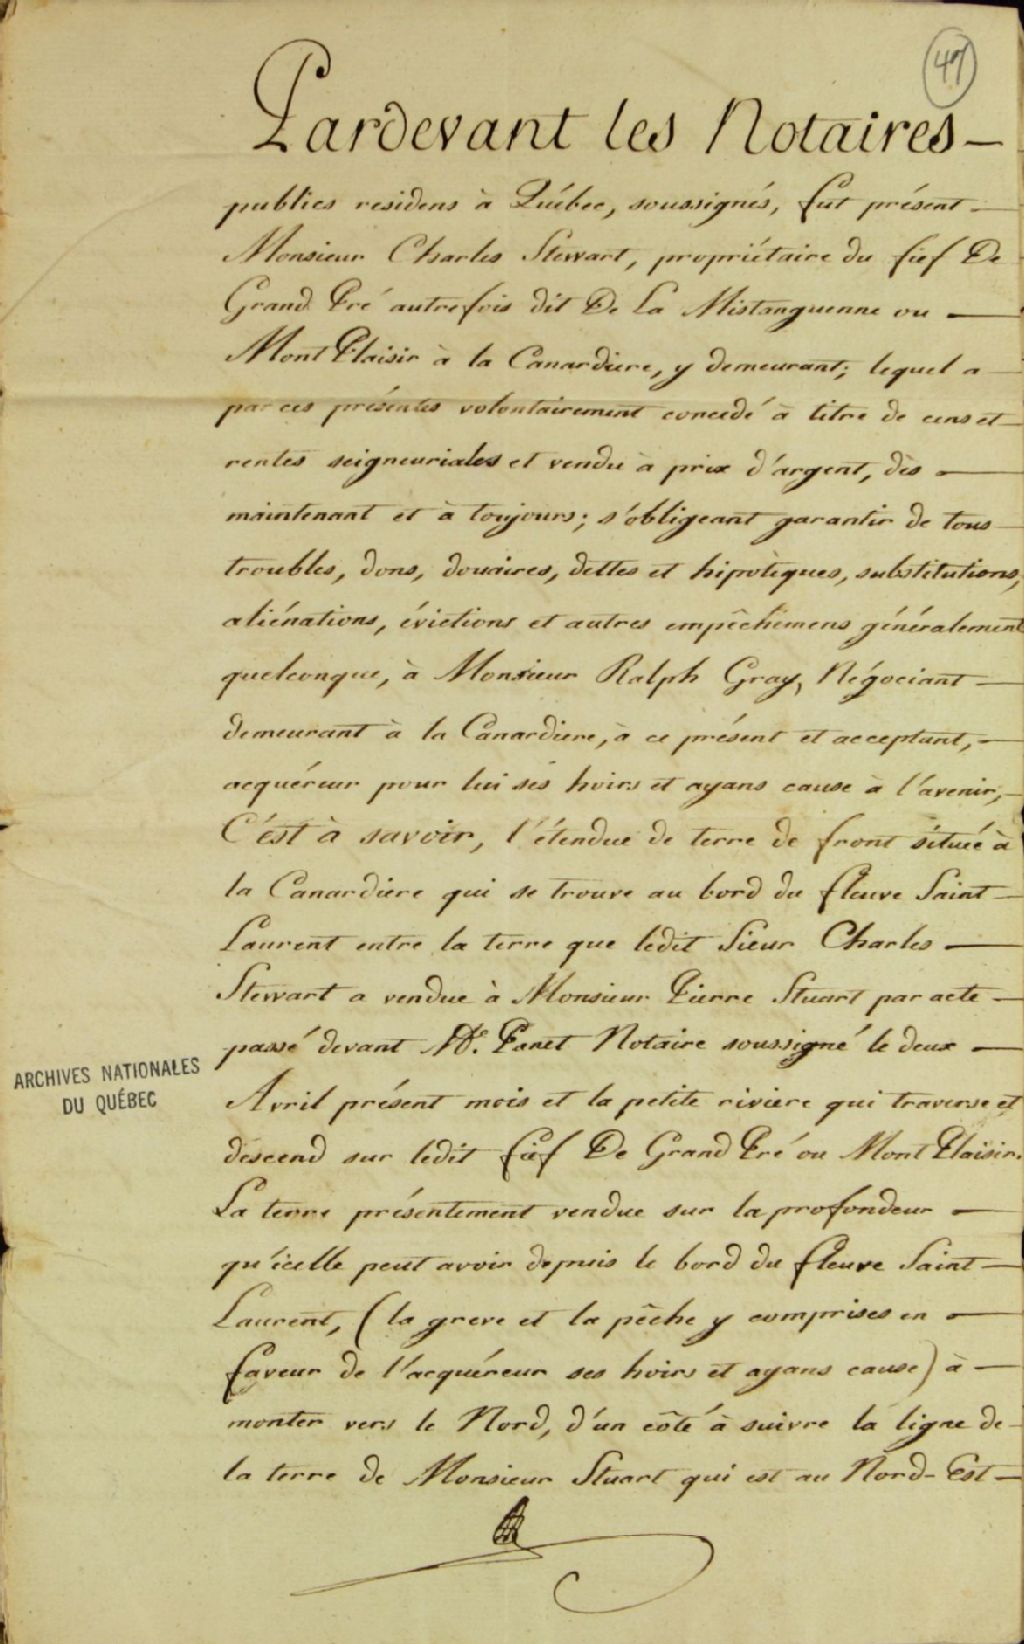 47
Pardevant les Notaires —
publics residens à Québec, soussignés, fut présent —
Monsieur Charles Stewart, propriétaire du fief De
Grand Pré autrefois dit De La Mistanguenne ou —
Mont Plaisir à la Canardiere, y demeurant; lequel a —
par ces présentes volontairement concedé à titre de cens et —
rentes seigneuriales et vendu à prix d'argent, dès —
maintenant et à toujours; s'obligeant garantir de tous —
troubles, dons, douaires, dettes et hipotèques, substitutions,
aliénations, évictions et autres empêchemens généralement
quelconque, à Monsieur Ralph Gray, Négociant —
demeurant à la Canardiere, à ce présent et acceptant, —
acquéreur pour lui ses hoirs et ayans cause à l'avenir, —
C'est à savoir, l'étendue de terre de front situé à
la Canardiere qui se trouve au bord du fleuve Saint —
Laurent entre la terre que ledit Sieur Charles —
Stewart a vendue à Monsieur Pierre Stuart par acte —
passé devant Me. Panet Notaire soussigné le deux —
Avril présent mois et la petite riviere qui traverse et
descend sur ledit fief De Grand Pré ou Mont Plaisir.
La terre présentement vendue sur la profondeur —
qu'icelle peut avoir depuis le bord du fleuve Saint —
Laurent, (la greve et la pêche y comprises en —
faveur de l'acquéreur ses hoirs et ayans cause) à —
monter vers le Nord, d'un côté à suivre la ligne de —
la terre de Monsieur Stuart qui est au Nord-Est —
ARCHIVES NATIONALES
DU QUÉBEC